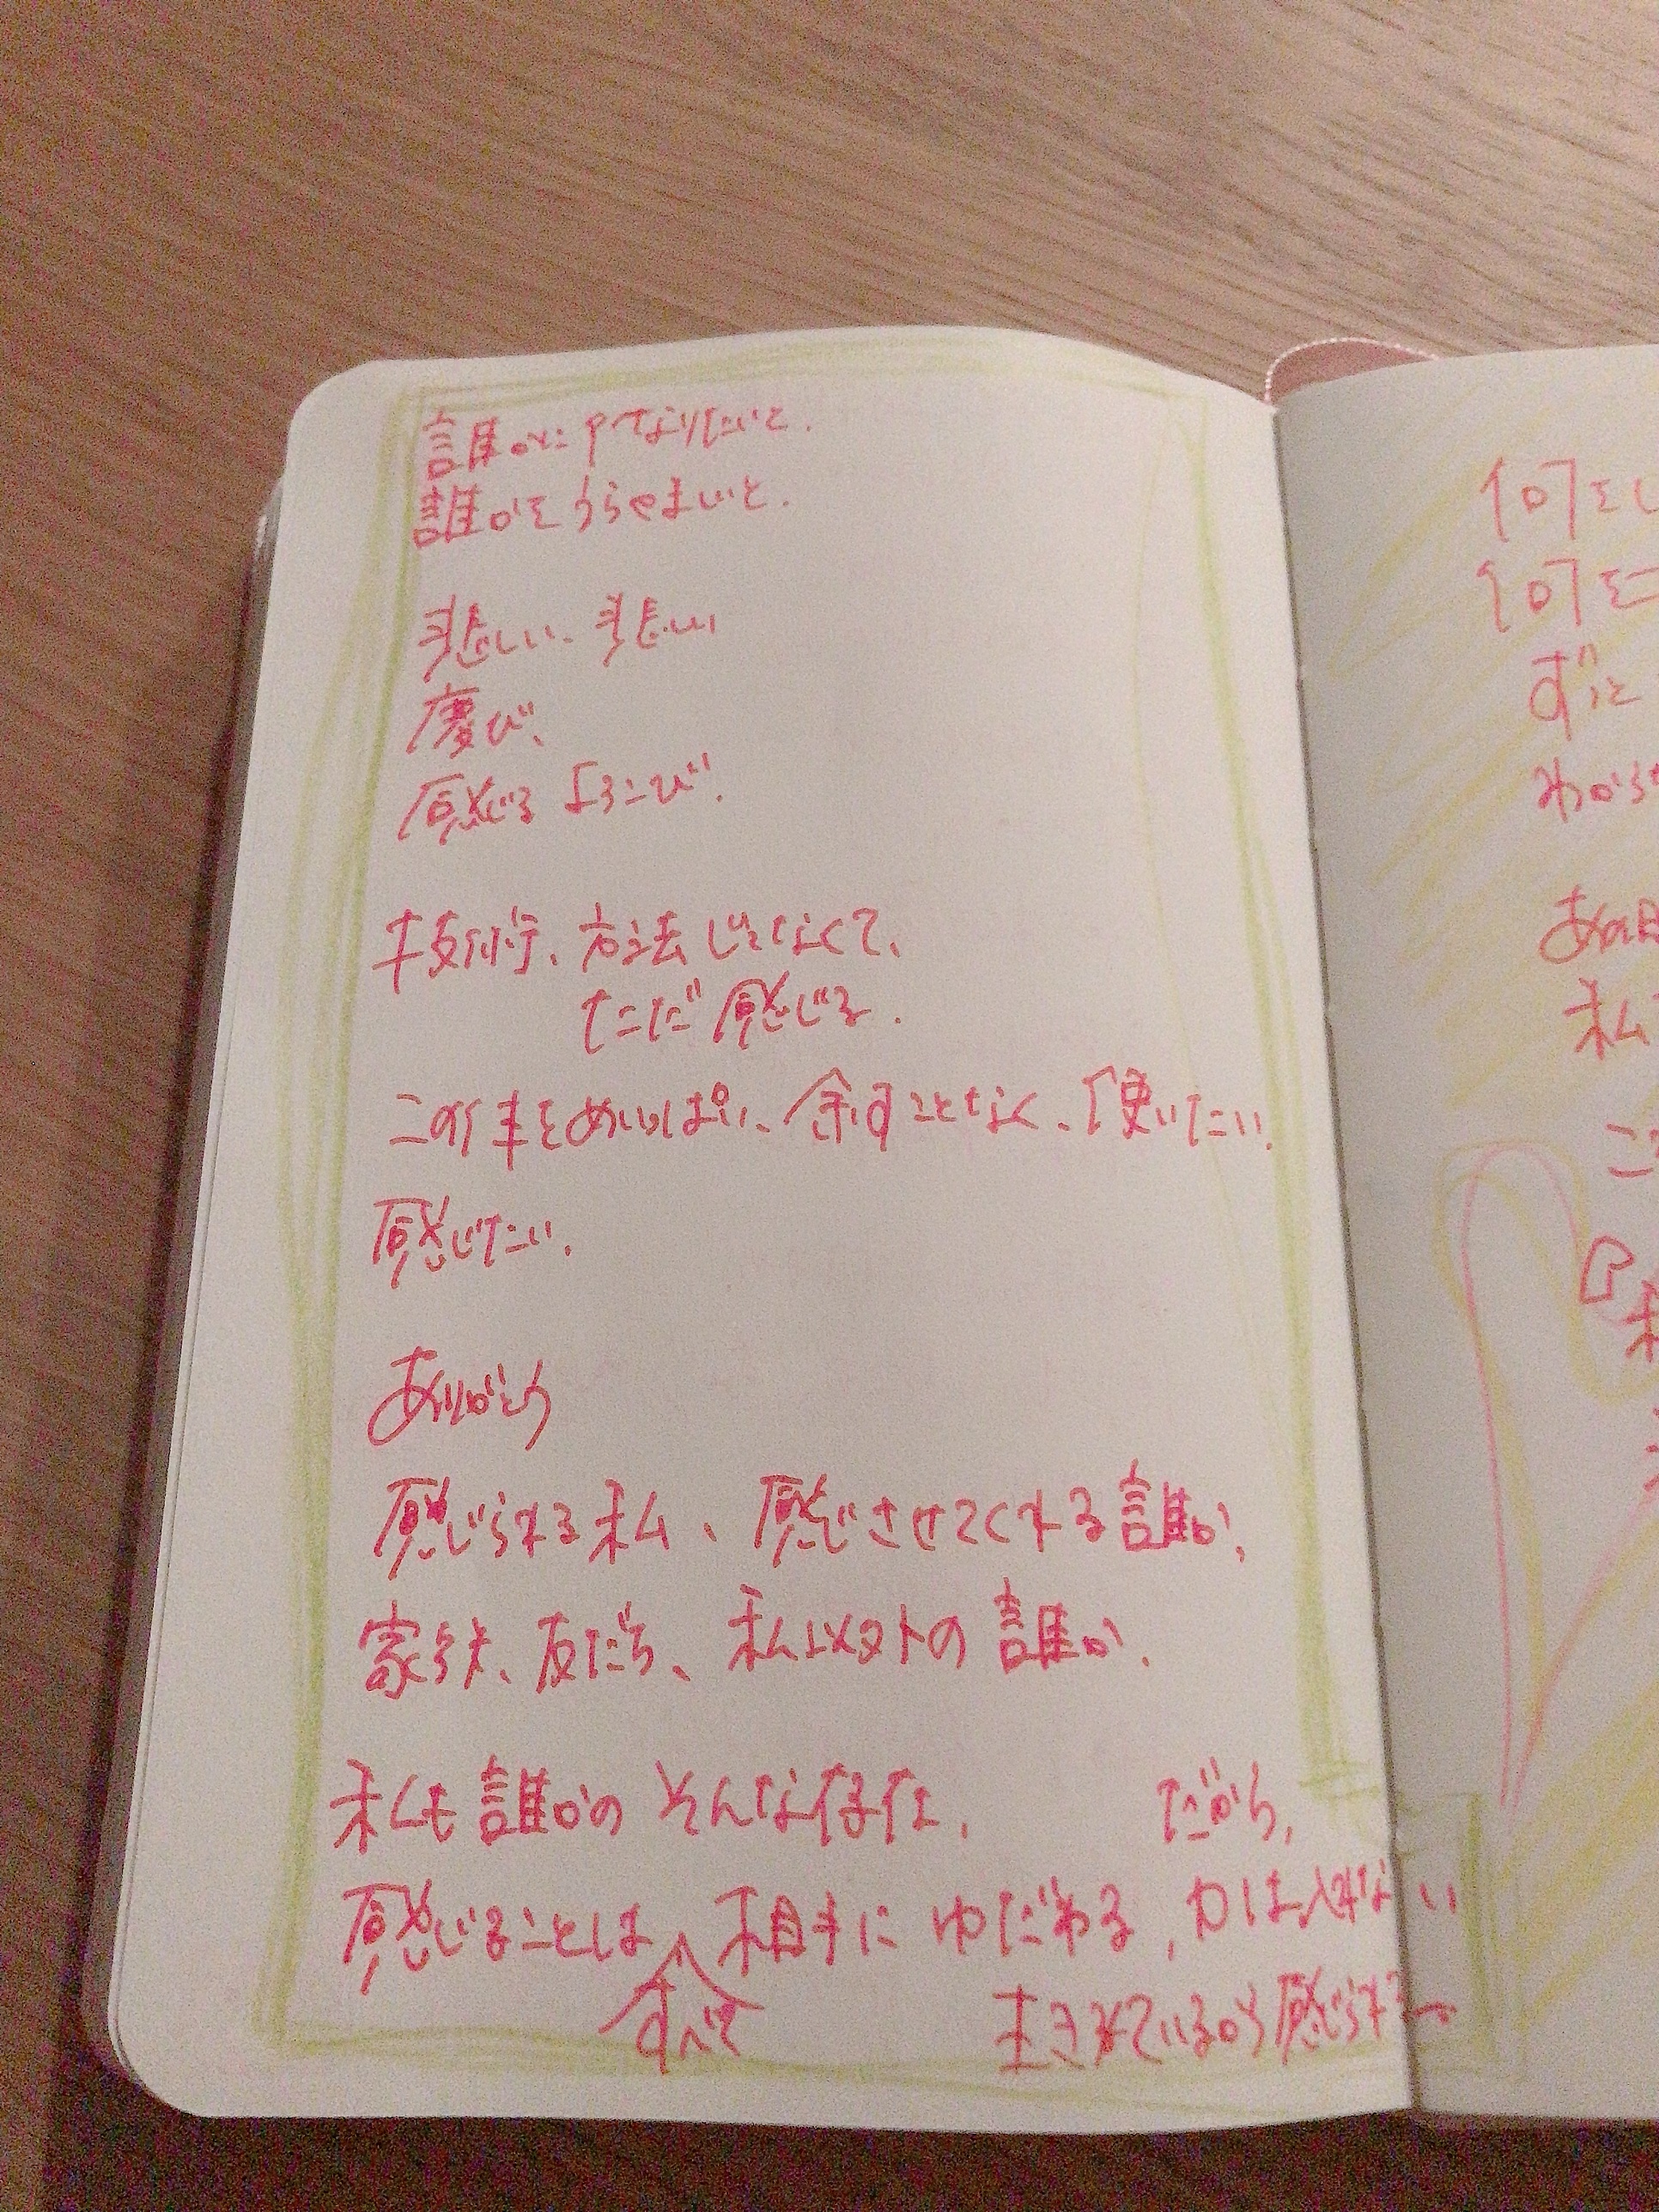 誰かに
誰かをうらやましいと.
悲しい、悲しい
慶び、
感じるよろこび.
技術、方法じゃなくて、
ただ感じる.
この体をめいっぱい、余すことなく、使いたい.
感じたい.
ありがとう
感じられる私、感じさせてくれる誰か、
家族、友だち、私以外の誰か.
私も誰かのそんな存在. だから、
感じることは 相手にゆだねる、力は入れない
すべて
生きているから感じられる
何をし
何を
ずっと
わから
私